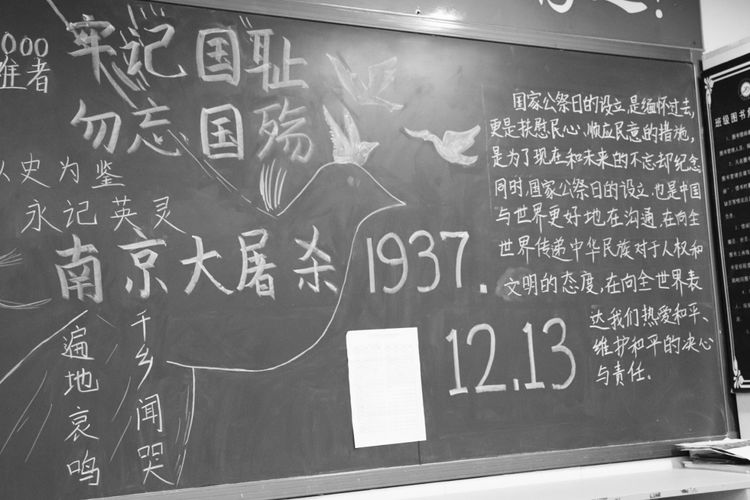 牢记国耻
勿忘国殇
000
难者
以史为鉴
永记英灵
南京大屠杀 1937.
12.13
遍地哀鸣
千乡闻哭
国家公祭日的设立,是缅怀过去,
更是扶慰民心、顺应民意的措施,
是为了现在和未来的不忘却纪念
同时,国家公祭日的设立,也是中国
与世界更好地在沟通,在向全
世界传递中华民族对于人权和
文明的态度,在向全世界表
达我们热爱和平、
维护和平的决心
与责任.
班级图书